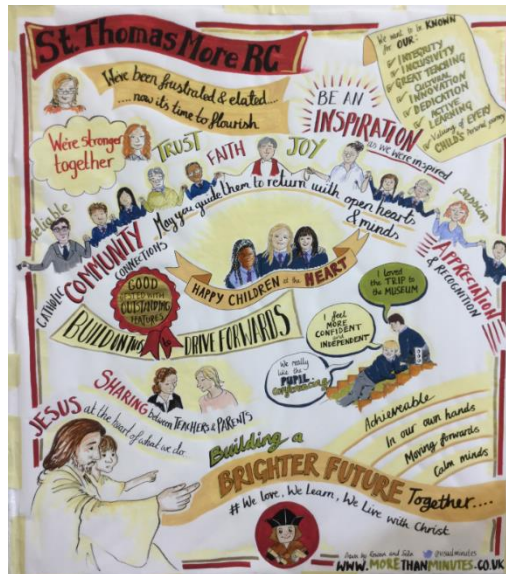 St. Thomas More RC
We've been frustrated & elated....
.... now its time to flourish
We want to be KNOWN
for OUR:
INTEGRITY
INCLUSIVITY
GREAT TEACHING
CULTURAL
INNOVATION
DEDICATION
ACTIVE
LEARNING
Valuing of EVERY
CHILD'S journey
BE AN
INSPIRATION
as we were inspired
We're stronger
together
TRUST
FAITH
JOY
reliable
passion
May you guide them to return with open hearts
& minds
CATHOLIC
COMMUNITY
CONNECTIONS
APPRECIATION
& RECOGNITION
HAPPY CHILDREN at the HEART
GOOD
WITH
OUTSTANDING
FEATURES
BUILD ON THIS
DRIVE FORWARDS
I loved
the TRIP to
the MUSEUM
I feel
MORE
CONFIDENT
and
INDEPENDENT
We really
like the
PUPIL
CONFERENCING
SHARING between TEACHERS & PARENTS
JESUS
at the heart of what we do
Achieveable
In our own hands
Moving forwards
Calm minds
Building a
BRIGHTER FUTURE
Together....
# We love, We Learn, We Live with Christ
Drawn by
@visualminutes
WWW.MORETHANMINUTES.CO.UK